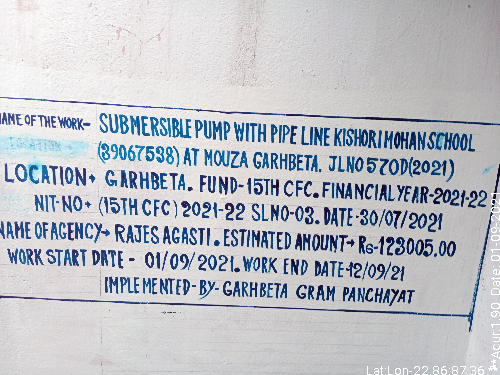 NAME OF THE WORK- SUBMERSIBLE PUMP WITH PIPE LINE KISHORI MOHAN SCHOOL
(39067538) AT MOUZA GARHBETA. JLNO570D(2021)
LOCATION
LOCATION→ GARHBETA. FUND-15TH CFC. FINANCIAL YEAR-2021-22
NIT-NO→ (15TH CFC) 2021-22 SLNO-03. DATE-30/07/2021
NAME OF AGENCY→ RAJES AGASTI. ESTIMATED AMOUNT→ RS-123005.00
WORK START DATE - 01/09/2021. WORK END DATE-12/09/21
IMPLEMENTED-BY- GARHBETA GRAM PANCHAYAT
Lat:Lon-22.86:87.36
**Acur:1.90 Date: 01-09-2021